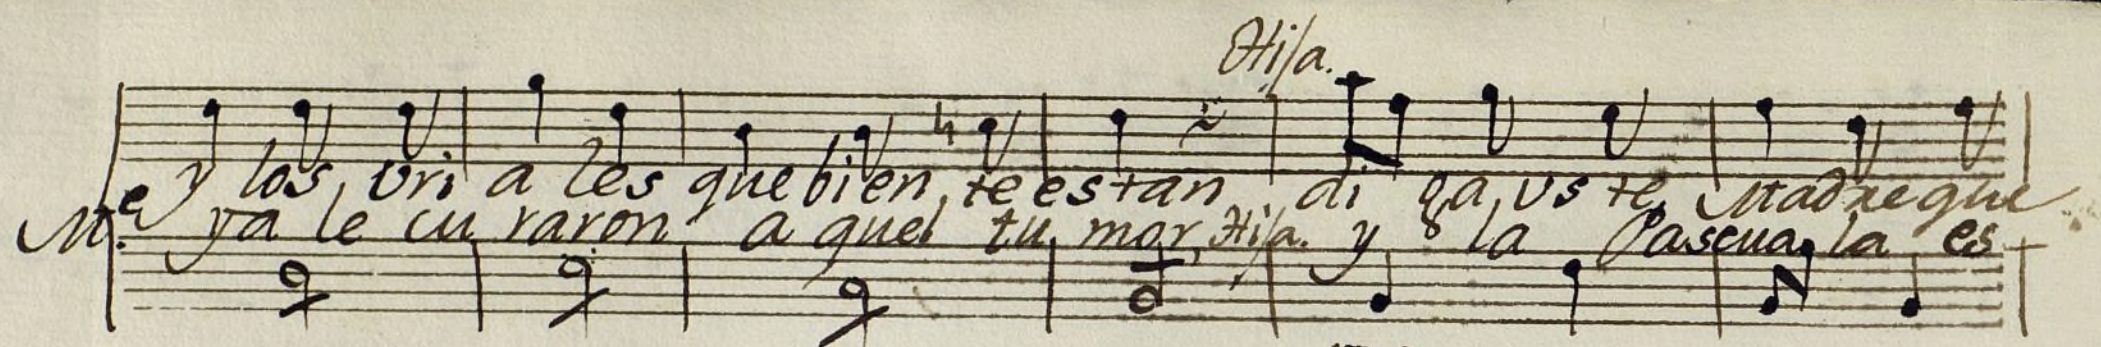 Hija.
y los, Uri a les que bien, te estan di ga, us te, Madre que
M.e ya le cu raron a quel tu mor, Hija. y la Pascua, la es